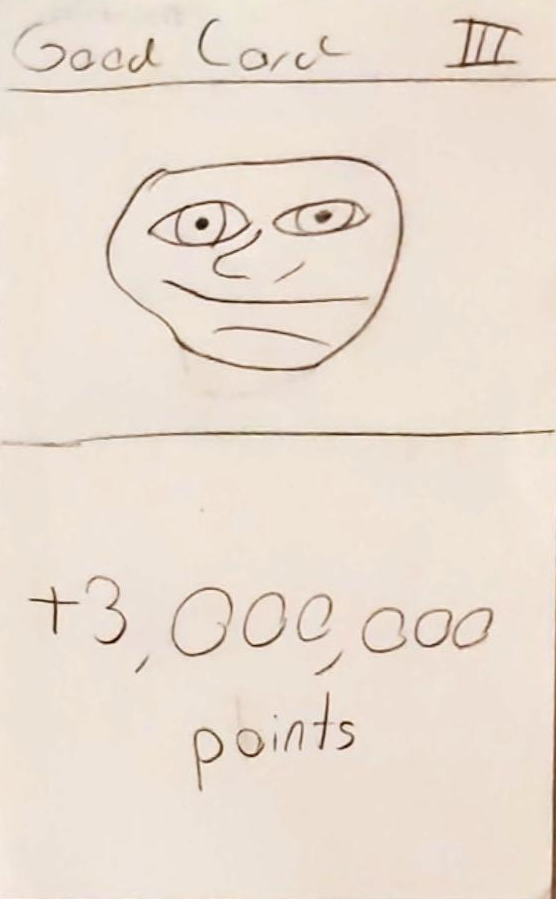 Good Card III
+3,000,000
points